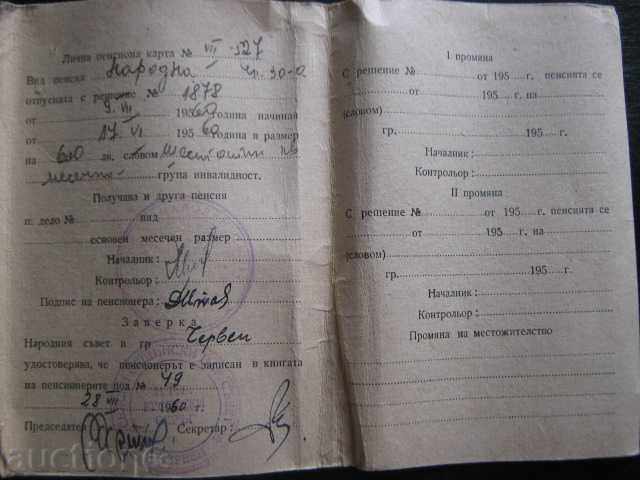 Лична пенсионна карта № VII-527
Вид пенсия народна чл. 30-
отпусната с решение № 1878
от 9. VII 1960 година начиная
от 17 VI 1960 година в размер
на 600 лв. словом шестстотин лв
месечно група инвалидност.
Получава и друга пенсия
п. дело № вид
основен месечен размер
Началник:
Контрольор:
Подпис на пенсионера:
Заверка
Народния съвет в гр Червен
удостоверява, че пенсионерът е записан в книгата
на пенсионерите под № 49
28 VII 1960 г.
Председател Секретар:
I промяна
С решение № от 195 г. пенсията се
от 195 г. на
(словом)
гр. 195 г.
Началник:
Контрольор:
II промяна
С решение № от 195 г. пенсията се
от 195 г. на
(словом)
гр. 195 г.
Началник:
Контрольор:
Промяна на местожителство
auction